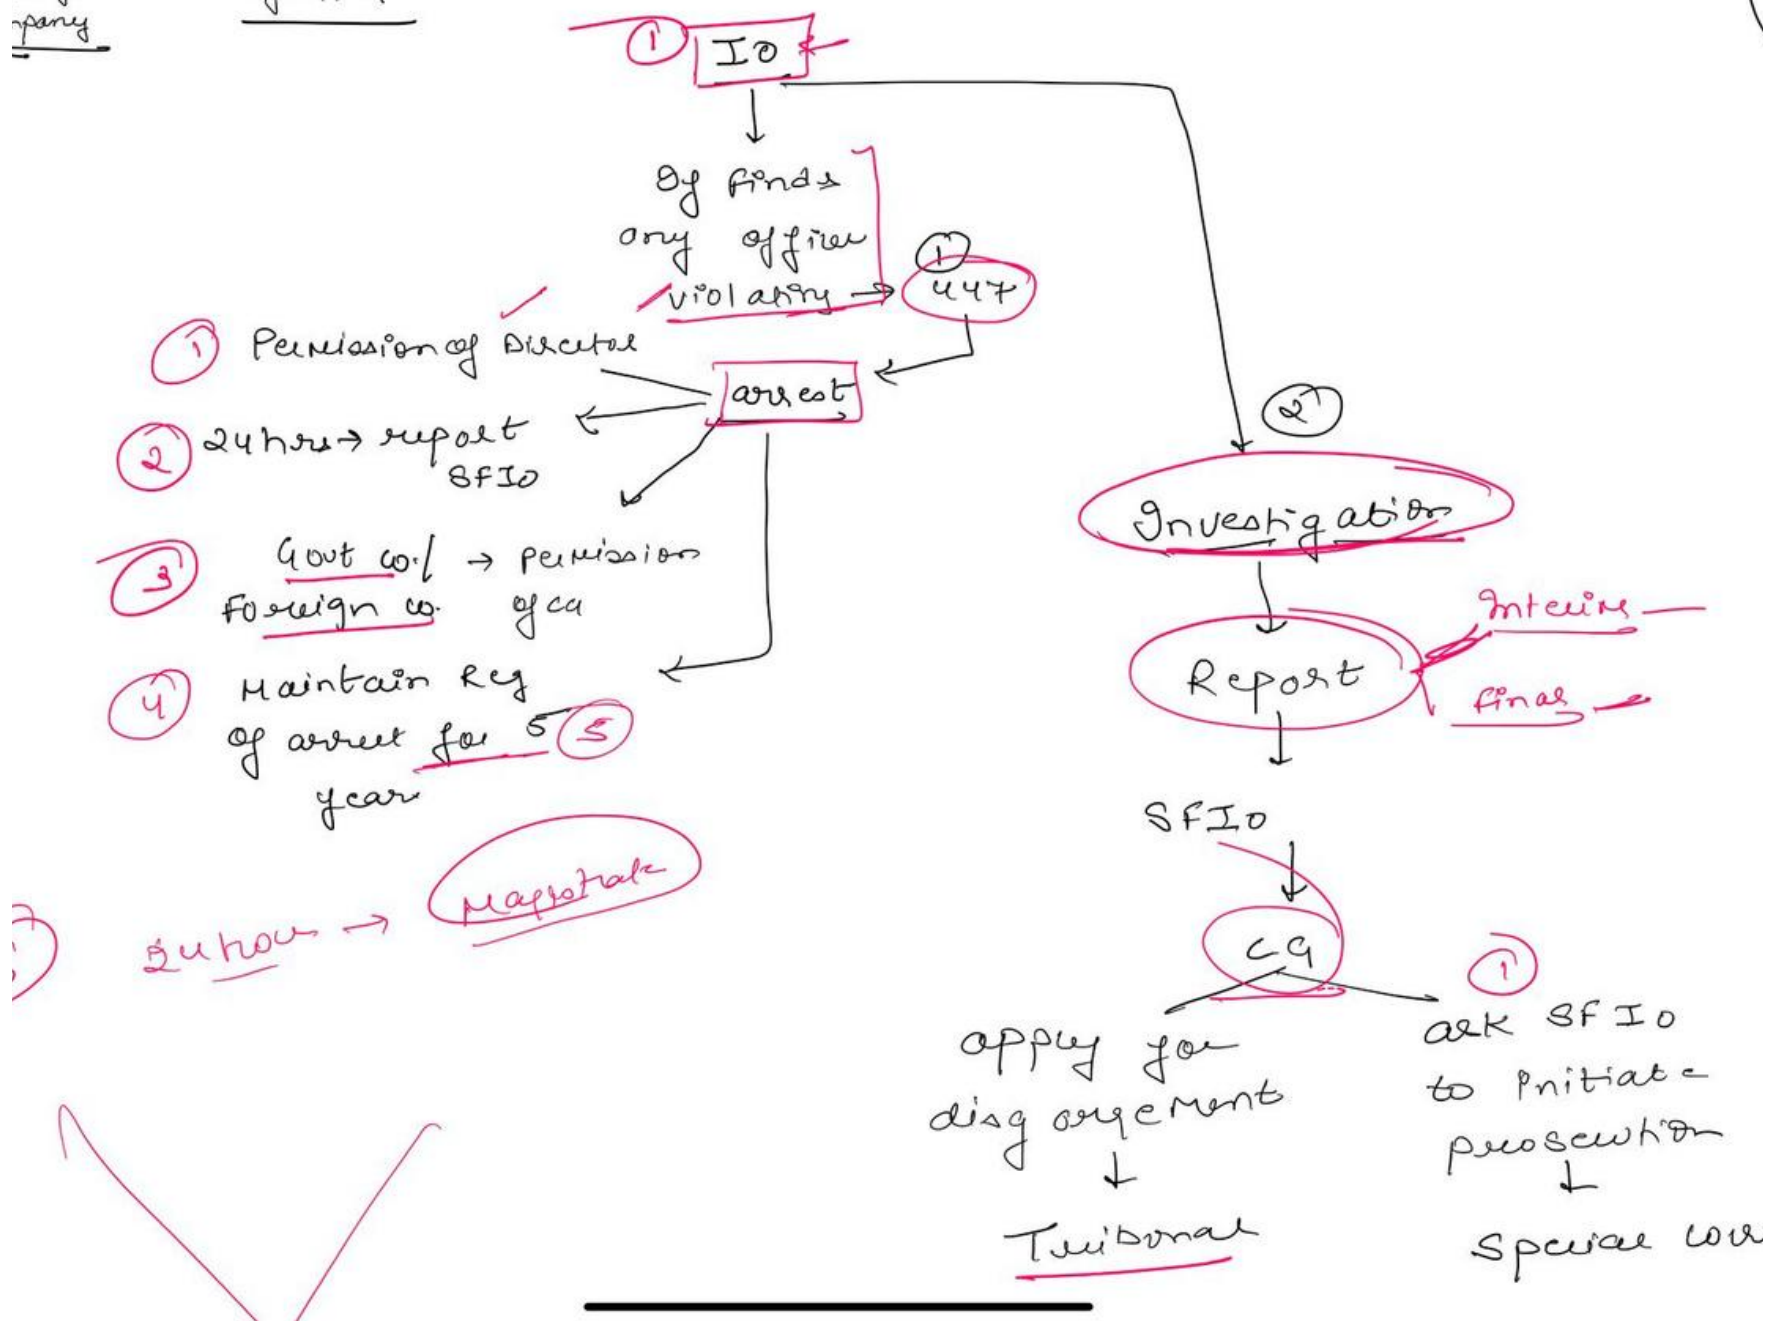 mpany
① IO
If finds
any officer
violating → 447
①
① Permission of Director
arrest
② 24 hrs → report
SFIO
③ Govt co. / → permission
Foreign co. of CG
④ Maintain Reg
of arrest for 5 ⑤
year
24 hour → Magistrate
②
Investigation
Report
Interim
final
SFIO
CG
apply for
disgorgement
Tribunal
①
ask SFIO
to initiate
prosecution
Special cour